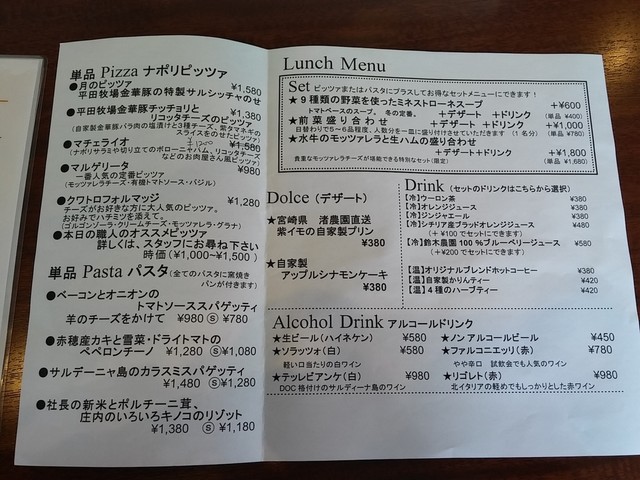 単品 Pizza ナポリピッツァ
●月のピッツァ ¥1,580
平田牧場金華豚の特製サルシッチャのせ
●平田牧場金華豚チッチョリと ¥1,380
リコッタチーズのピッツァ
(自家製金華豚バラ肉の塩漬けと3種チーズ、紫タマネギの
スライスをのせたピッツァ)
●マチェライオ ¥1,580
(ナポリサラミや切り立てのボローニャハム、リコッタチーズ
などのお肉屋さん風ピッツァ)
●マルゲリータ ¥980
一番人気の定番ピッツァ
(モッツァレラチーズ・有機トマトソース・バジル)
●クワトロフォルマッジ ¥1,280
チーズがお好きな方に大人気のピッツァ。
お好みでハチミツを添えて。
(ゴルゴンゾーラ・クリームチーズ・モッツァレラ・グラナ)
●本日の職人のオススメピッツァ
詳しくは、スタッフにお尋ね下さい
時価(¥1,000~¥1,500)
単品 Pasta パスタ(全てのパスタに窯焼き
パンが付きます)
●ベーコンとオニオンの
トマトソーススパゲッティ
羊のチーズをかけて ¥980 Ⓢ ¥780
●赤穂産カキと雪菜・ドライトマトの
ペペロンチーノ ¥1,280 Ⓢ¥1,080
●サルデーニャ島のカラスミスパゲッティ
¥1,480 Ⓢ¥1,280
●社長の新米とポルチーニ茸、
庄内のいろいろキノコのリゾット
¥1,380 Ⓢ ¥1,180
Lunch Menu
Set ピッツァまたはパスタにプラスしてお得なセットメニューにできます!
★9種類の野菜を使ったミネストローネスープ +¥600
トマトベースのスープ。 冬の定番。 +デザート +ドリンク (単品 ¥400)
★前菜盛り合わせ +デザート +ドリンク +¥1,000
日替わりで5~6品程度、人数分を一皿に盛り付けさせていただきます (1名分) (単品 ¥780)
★水牛のモッツァレラと生ハムの盛り合わせ
+デザート+ドリンク +¥1,800
貴重なモッツァレラチーズが堪能できる特別なセット(限定) (単品 ¥1,680)
Dolce (デザート)
★宮崎県 渚農園直送
紫イモの自家製プリン
¥380
★自家製
アップルシナモンケーキ
¥380
Drink (セットのドリンクはこちらから選択)
【冷】ウーロン茶 ¥380
【冷】オレンジジュース ¥380
【冷】ジンジャエール ¥380
【冷】シチリア産ブラッドオレンジジュース ¥480
(+¥100でセットにできます)
【冷】鈴木農園 100%ブルーベリージュース ¥580
(+¥200でセットにできます)
【温】オリジナルブレンドホットコーヒー ¥380
【温】自家製かりんティー ¥420
【温】4種のハーブティー ¥420
Alcohol Drink アルコールドリンク
★生ビール(ハイネケン) ¥580
★ソラッツォ(白) ¥580
軽い口当たりの白ワイン
★テッレビアンケ(白) ¥980
DOC 格付けのサルディーナ島のワイン
★ノンアルコールビール ¥450
★ファルコニエッリ(赤) ¥780
やや辛口 試飲会でも人気のワイン
★リゴレト(赤) ¥980
北イタリアの軽めでもしっかりとした赤ワイン